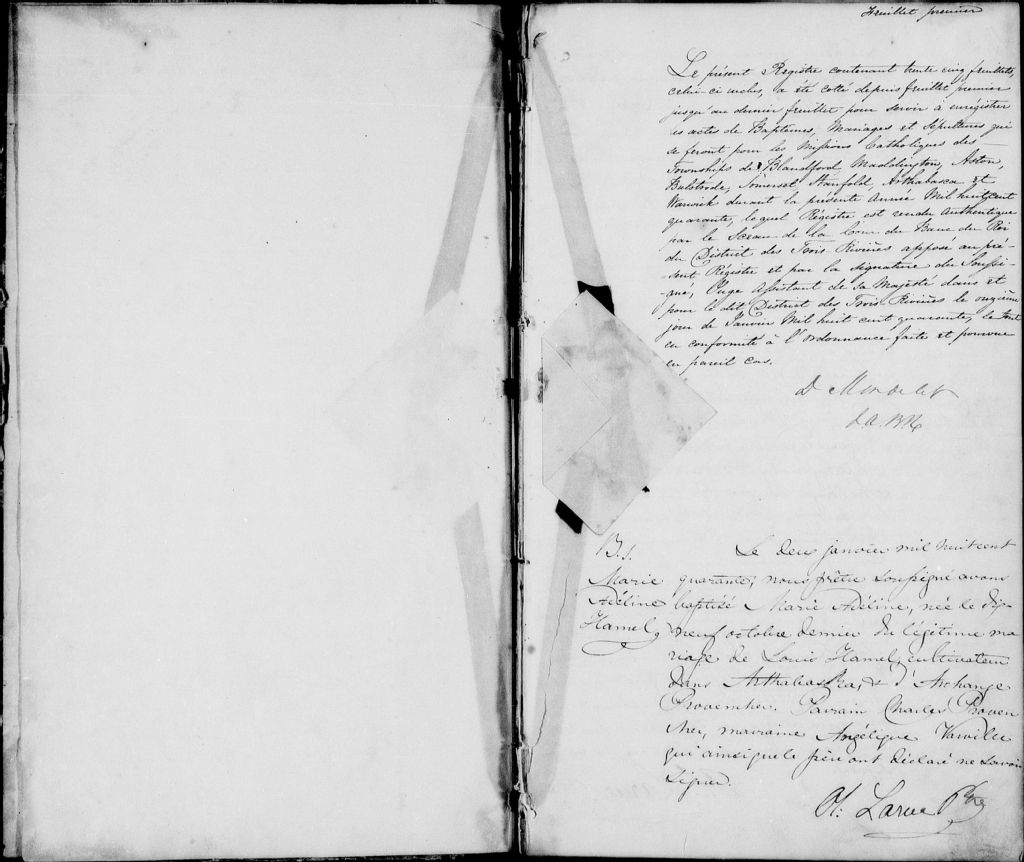 Feuillet premier
Le présent Registre contenant trente cinq feuillets,
celui-ci inclus, a été cotté depuis feuillet premier
jusqu'au dernier feuillet pour servir à enregistrer
les actes de Baptêmes, Mariages et Sépultures qui
se feront pour les Missions Catholiques des
Townships de Blandford Maddington, Aston,
Bulstrode, Somerset Stanfold, Arthabasca et
Warwick durant la présente Année Mil huit cent
quarante, lequel Régistre est rendu Authentique
par le Sceau de la Cour du Banc du Roi
du District des Trois Rivières apposé au pré-
-sent Régistre et par la signature du Soussi-
-gné, Juge Assistant de sa Majesté dans et
pour le dit District des Trois Rivières le onzième
jour de Janvier Mil huit cent quarante, le tout
en conformité à l'ordonnance faite et pourvue
en pareil cas.
D Mondelet
J.A.B.R
B.1.
Marie
Adéline
Hamel,
Le deux janvier mil huit cent
quarante, nous prêtre soussigné avons
baptisé Marie Adéline, née le dix-
neuf octobre dernier du légitime ma
riage de Louis Hamel, cultivateur
dans Arthabaska, & d'Archange
Provencher. Parrain Charles Proven
cher, marraine Angélique
qui ainsi que le père ont déclaré ne savoir
signer.
Ol: Larue Ptre